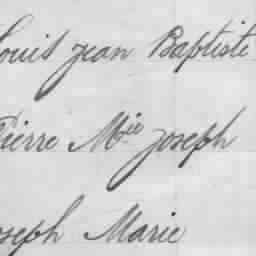 Louis jean Baptiste
Pierre Mie joseph
joseph Marie